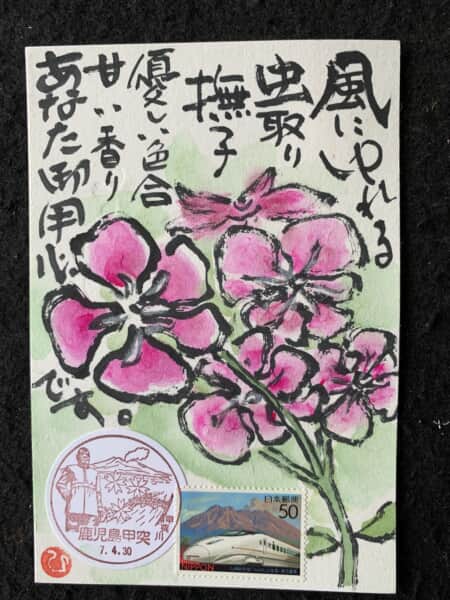 風にゆれる
虫取り
撫子
優しい色合
甘い香り
あなた御用心
です。
甲突川
鹿児島甲突
7.4.30
日本郵便
50
NIPPON